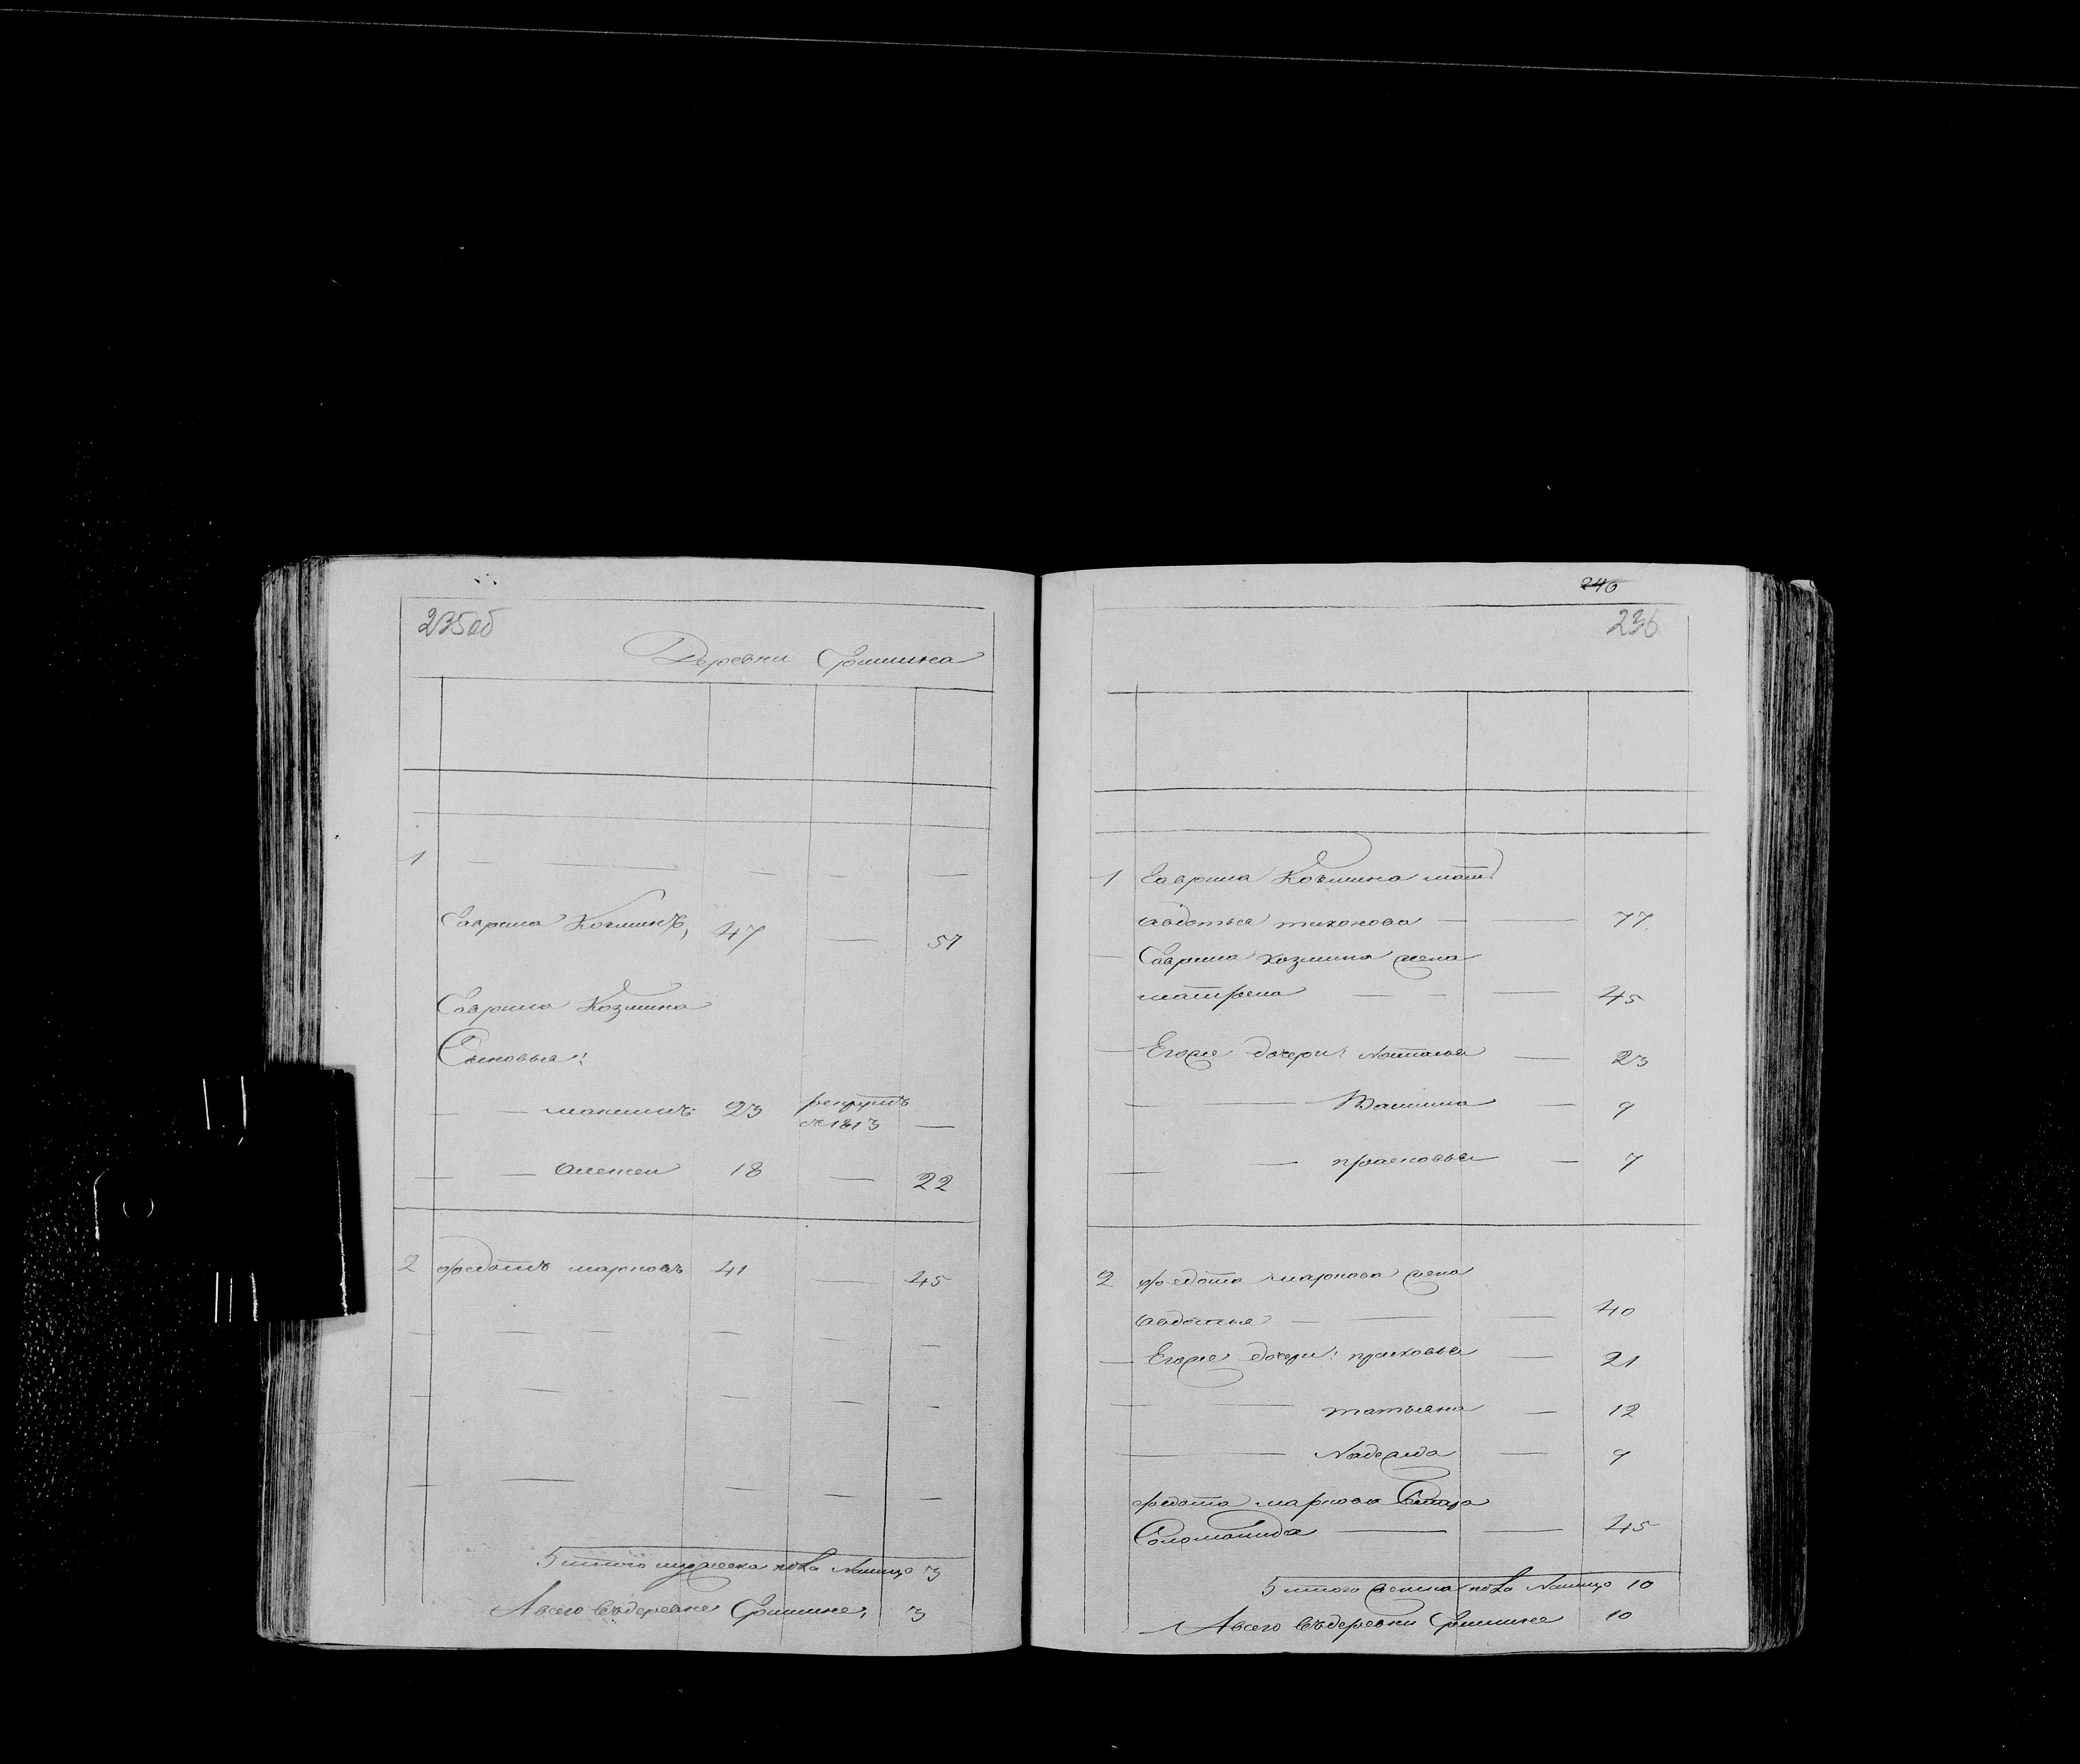 235об
Деревни Гришина
1
Гаврила Козминъ, 47 — 51
Гаврила Козмина
Сыновья:
максимъ 23 рекрутъ
с 1813 —
алексеи 18 — 22
2 федотъ марковъ 41 — 45
итого мужеска пола налицо 3
А всего въ деревне Гришине, 3
240
236
1 Гаврила Козмина мать
авдотья тихонова — — 77
Гаврила козмина жена
матрена — — 45
Егоже дочери: Наталья — 23
— 9
прасковья — 7
2 федота маркова жена
авдотья — 40
Егоже дочери: прасковья — 21
татьяна — 12
Надежда — 9
федота маркова сестра
Соломанида — — 45
итого женска пола налицо 10
А всего въ деревни Гришине 10